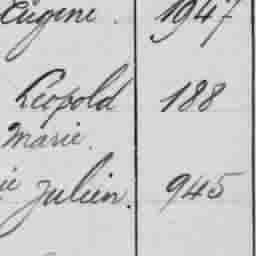 Eugène. 1947
Léopold 188
Marie.
ie Julien. 945